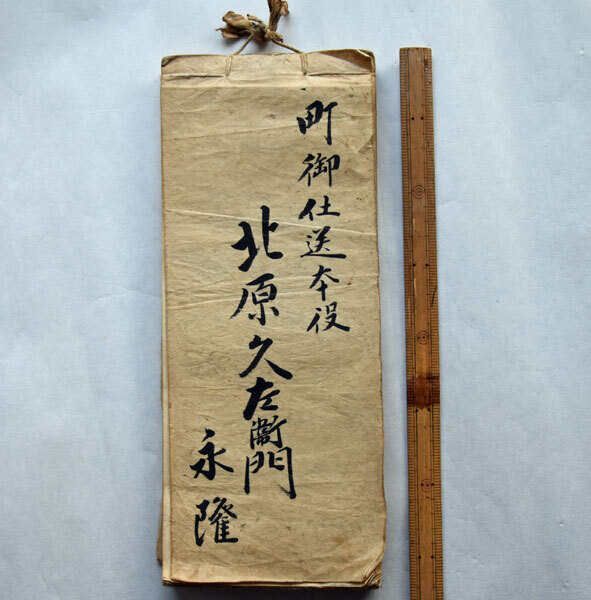 町御仕送本役
北原久左衛門
永隆